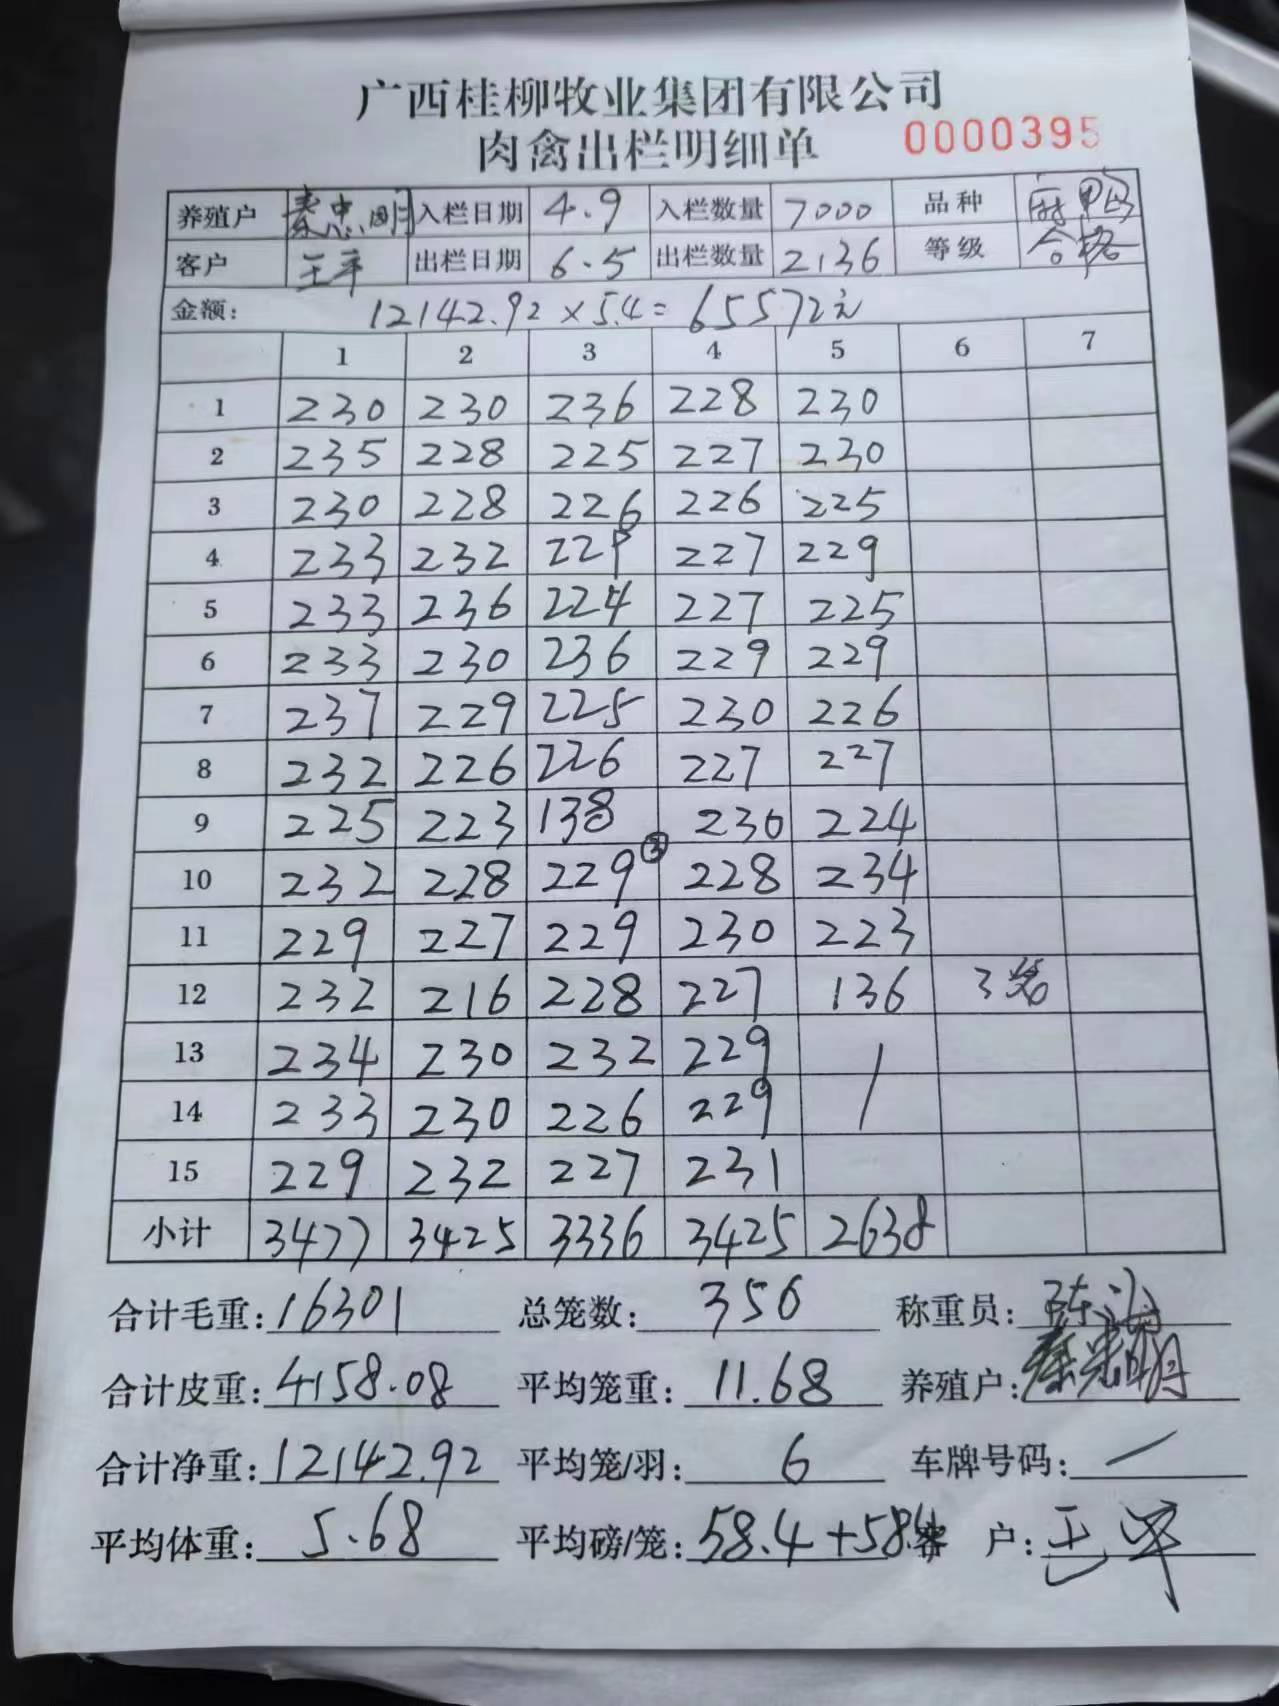 广西桂柳牧业集团有限公司
肉禽出栏明细单 0000395
养殖户 秦忠明 入栏日期 4.9 入栏数量 7000 品种 麻鸭
客户 王平 出栏日期 6.5 出栏数量 2136 等级 合格
金额: 12142.92×5.4=65572元
1 2 3 4 5 6 7
1 230 230 236 228 230
2 235 228 225 227 230
3 230 228 226 226 225
4 233 232 229 227 229
5 233 236 224 227 225
6 233 230 236 229 229
7 237 229 225 230 226
8 232 226 226 227 227
9 225 223 138 ③ 230 224
10 232 228 229 228 234
11 229 227 229 230 223
12 232 216 228 227 136 3笼
13 234 230 232 229 /
14 233 230 226 229
15 229 232 227 231
小计 3477 3425 3336 3425 2638
合计毛重: 16301 总笼数: 356 称重员:
合计皮重: 4158.08 平均笼重: 11.68 养殖户:
合计净重: 12142.92 平均笼/羽: 6 车牌号码: /
平均体重: 5.68 平均磅/笼: 58.4+58.4 客户: 王平